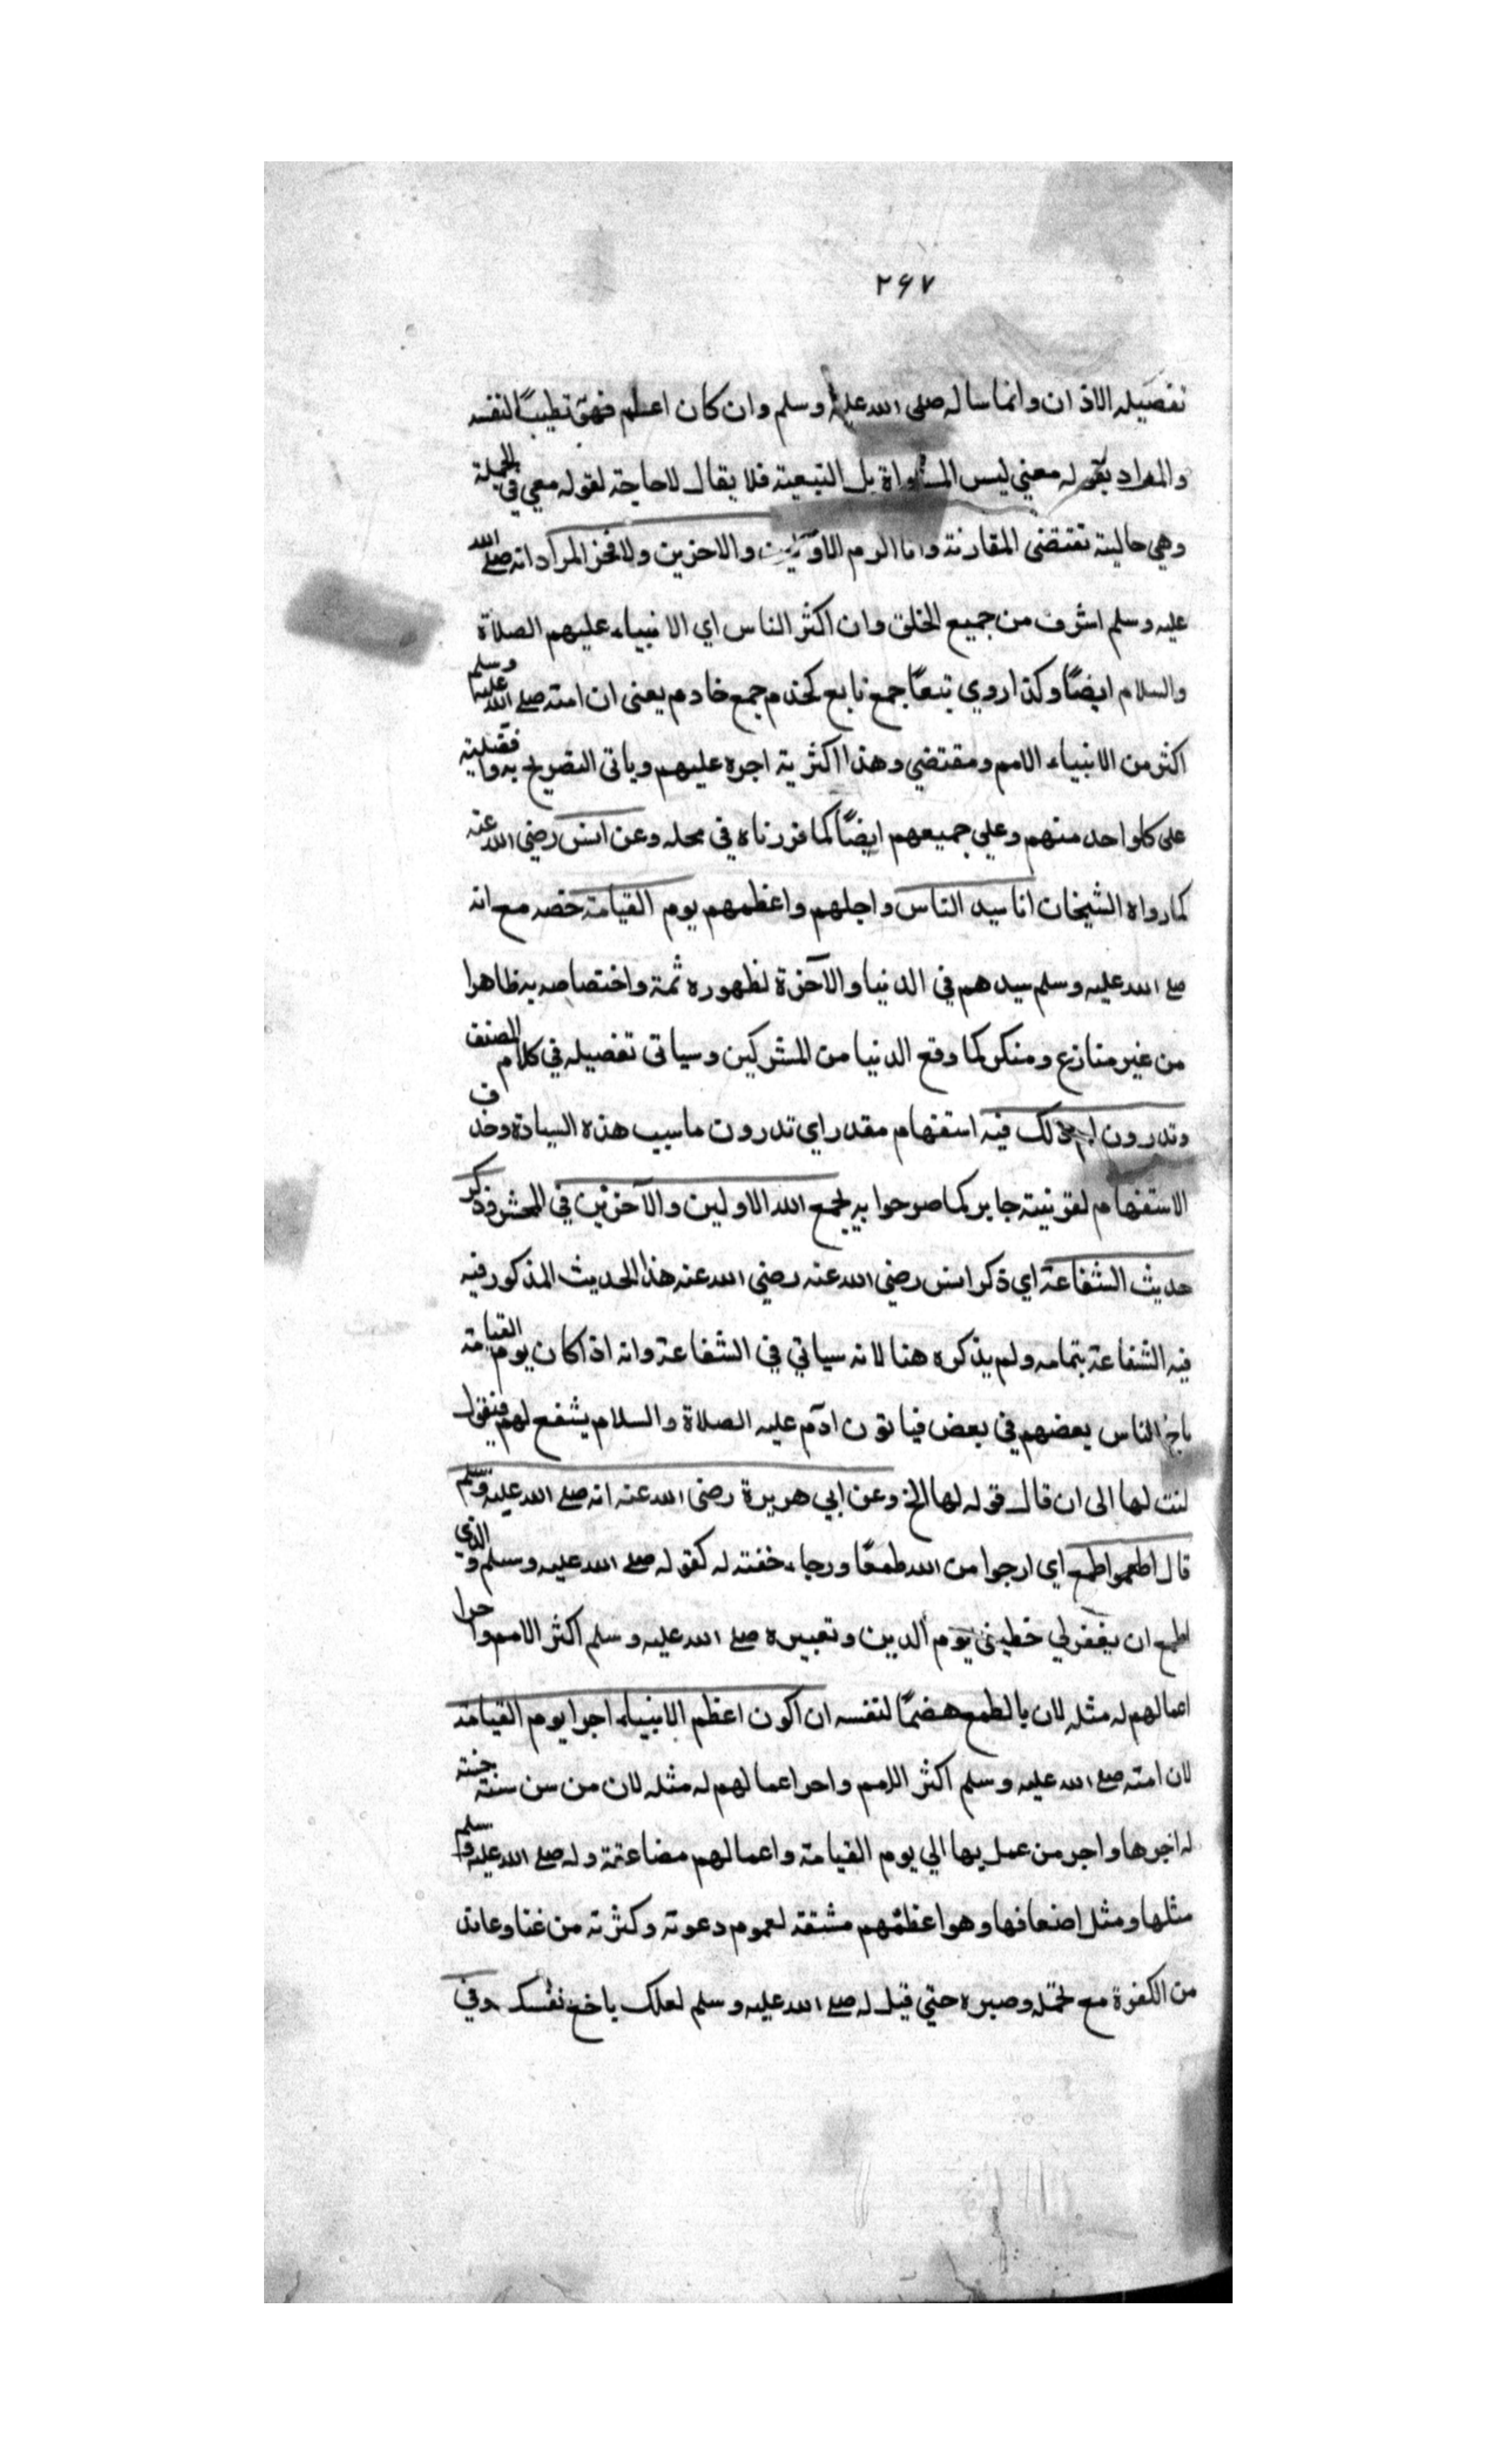 ٢٦٧
تفصيله الاذان وانما ساله صلى الله عليه وسلم وان كان اعظم فهو تطيبًا لنفسه
والمراد بقوله معنى ليس المساواة بل التبعية فلا يقال لا حاجة لقوله معي في الجملة
وهي حالية تقتضى المقارنة وانا اكرم الاولين والاخرين ولا فخر المراد انه صلى الله
عليه وسلم اشرف من جميع الخلق وان اكثر الناس اي الانبياء عليهم الصلاة
والسلام ايضًا وكذا روي تبعًا جمع تابع كخدم جمع خادم يعنى ان امته صلى الله عليه وسلم
اكثر من الانبياء الامم ومقتضي وهذا اكثرية اجره عليهم وياتى التصريح به وافضليته
على كل واحد منهم وعلي جميعهم ايضًا كما قررناه في محله وعن انس رضى الله عنه
كما رواه الشيخان انا سيد الناس واجلهم واعظمهم يوم القيامة خصه مع انه
صلى الله عليه وسلم سيدهم في الدنيا والآخرة لظهوره ثمة واختصاصه به ظاهرا
من غير منازع ومنكر كما وقع الدنيا من المشركين وسياتى تفصيله في كلام المصنف
وتدرون لم ذلك فيه استفهام مقدر اي تدرون ما سبب هذه السيادة وحذف
الاستفهام لقرنيته جايز كما صرحوا به يجمع الله الاولين والآخرين في المحشر وذكر
حديث الشفاعة اي ذكر انس رضى الله عنه رضي الله عنه هذا الحديث المذكور فيه
فيه الشفاعة بتمامه ولم يذكره هنا لانه سياتي في الشفاعة وانه اذا كان يوم القيامة
ماج الناس بعضهم في بعض فياتون ادم عليه الصلاة والسلام يشفع لهم فيقول
لست لها الى ان قال قوله لها الخ وعن ابي هريرة رضى الله عنه انه صلى الله عليه وسلم
قال اطعموا طمع اي ارجوا من الله طمعًا ورجاء خفته له كقوله صلى الله عليه وسلم والذي
اطمع ان يغفر لي خطيئتى يوم الدين وتعبيره صلى الله عليه وسلم اكثر الامم واجرا
اعمالهم له مثله لان بالطمع هضمًا لنفسه ان اكون اعظم الانبياء اجرا يوم القيامة
لان امته صلى الله عليه وسلم اكثر الامم واجر اعمالهم له مثله لان من سن سنة حسنة
له اجرها واجر من عمل بها الي يوم القيامة واعمالهم مضاعفة وله صلى الله عليه وسلم
مثلها ومثل اضعافها وهو اعظمهم مشقة لعموم دعوته وكثرته من عتا وعاند
من الكفرة مع تحمله وصبره حتي قيل له صلى الله عليه وسلم لعلك باخع نفسك وفي